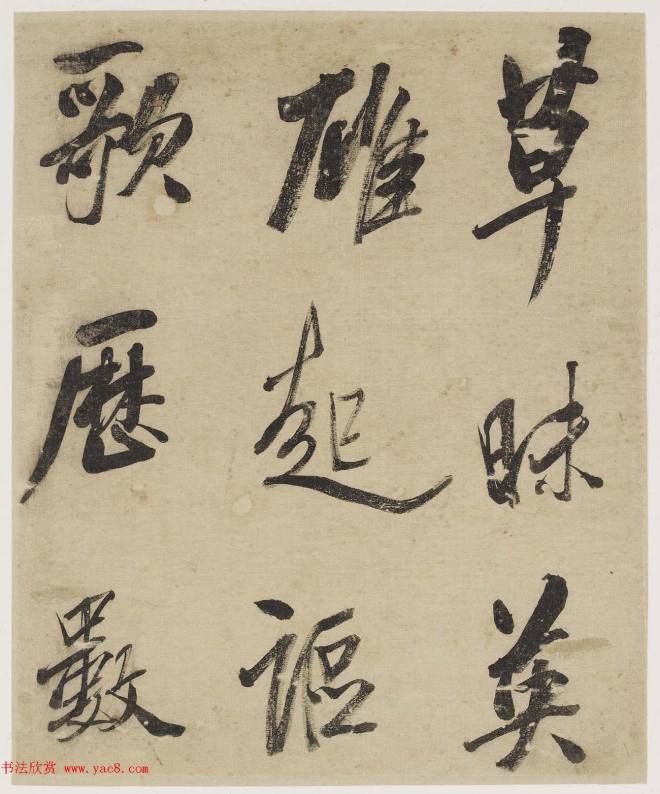 草昧英
雄起謳
歌歷數
书法欣赏 www.yac8.com